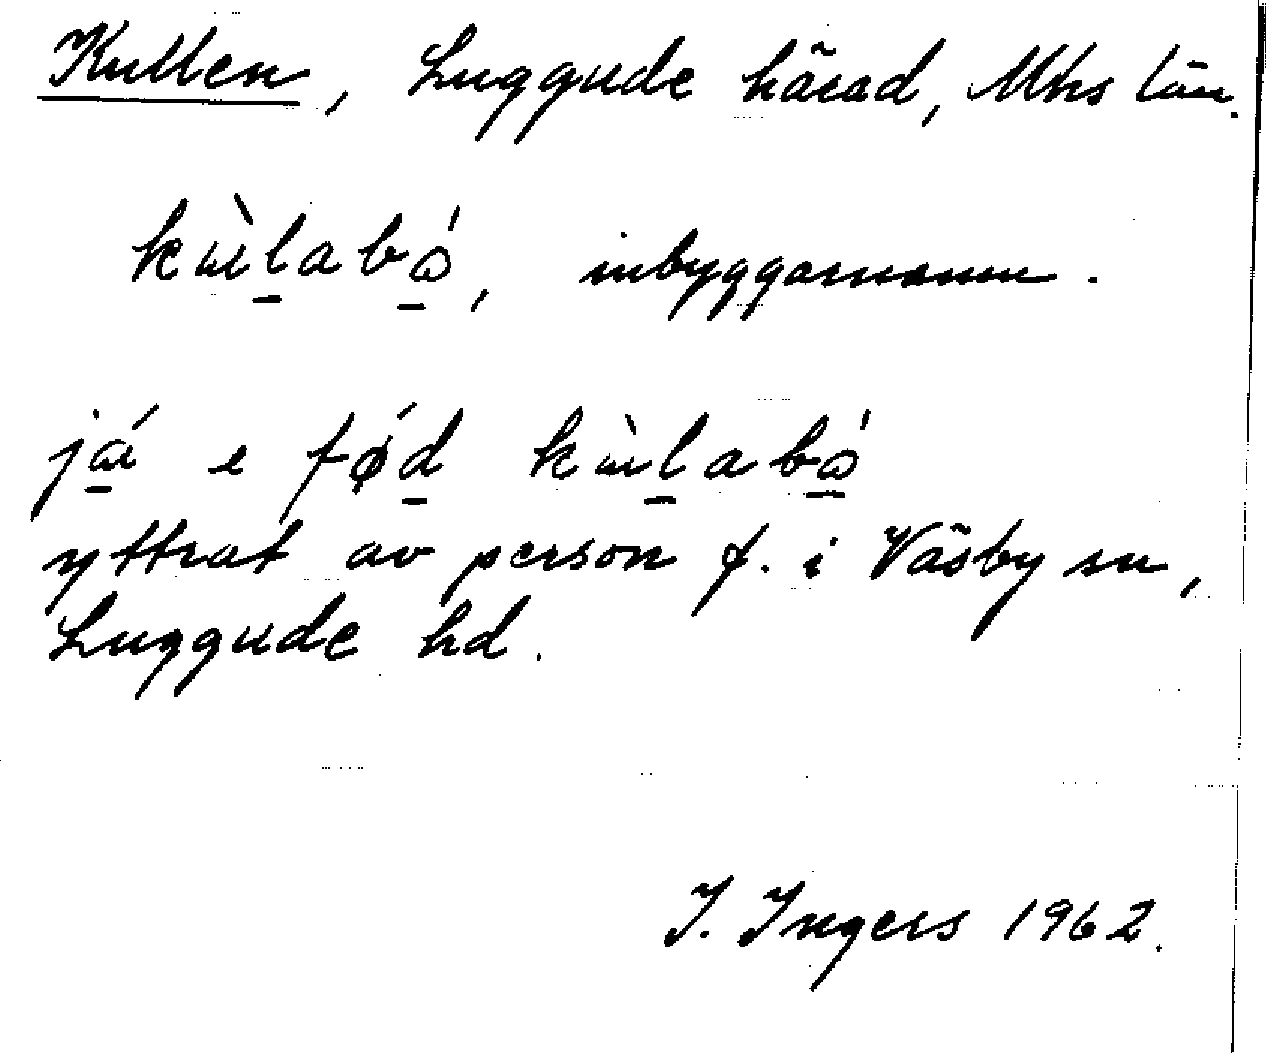 Kullen, Luggude härad, Mhs län.
kùlabó, inbyggarnamn.
já e fǿd kùlabó
yttrat av person f. i Väsby sn,
Luggude hd.
I. Ingers 1962.